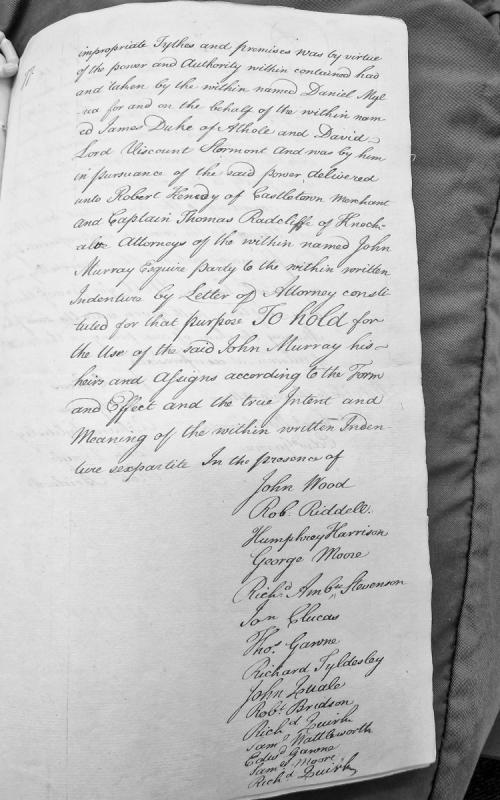 impropriate Tythes and premises was by virtue
of the power and Authority within contained had
and taken by the within named Daniel Myl
rea for and on the behalf of the within nam
ed James Duke of Athole and David
Lord Viscount Stormont and was by him
in pursuance of the said power, delivered
unto Robert Henedy of Castletown Merchant
and Captain Thomas Radcliffe of Knock-
aloe Attorneys of the within named John
Murray Esquire party to the within written
Indenture by Letter of Attorney consti
tuted for that purpose To hold for
the Use of the said John Murray his
heirs and Assigns according to the Form
and Effect and the true Intent and
Meaning of the within written Inden
ture sexpartite In the presence of
John Wood
Robt. Riddell.
Humphrey Harrison
George Moore
Richd. Ambse Stevenson
Jon Clucas
Thos. Gawne
Richard Tyldesley
John Quale
Robt. Bridson
Richd Quirk
Saml. Wattleworth
Edwd Gawne
James Moore
Richd Quirk